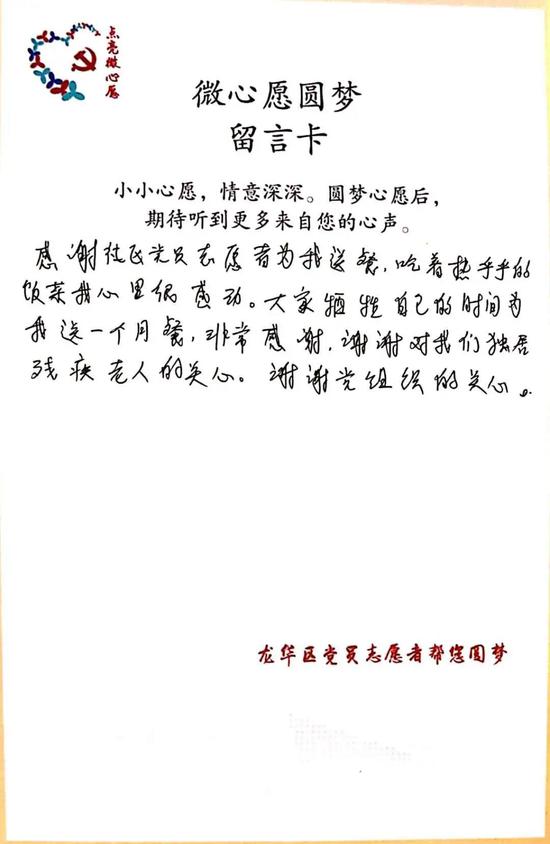 点亮微心愿
微心愿圆梦
留言卡
小小心愿，情意深深。圆梦心愿后，
期待听到更多来自您的心声。
感谢社区党员志愿者为我送餐，吃着热乎乎的
饭菜我心里很感动。大家牺牲自己的时间为
我送一个月餐，非常感谢，谢谢对我们独居
残疾老人的关心。谢谢党组织的关心。
龙华区党员志愿者帮您圆梦